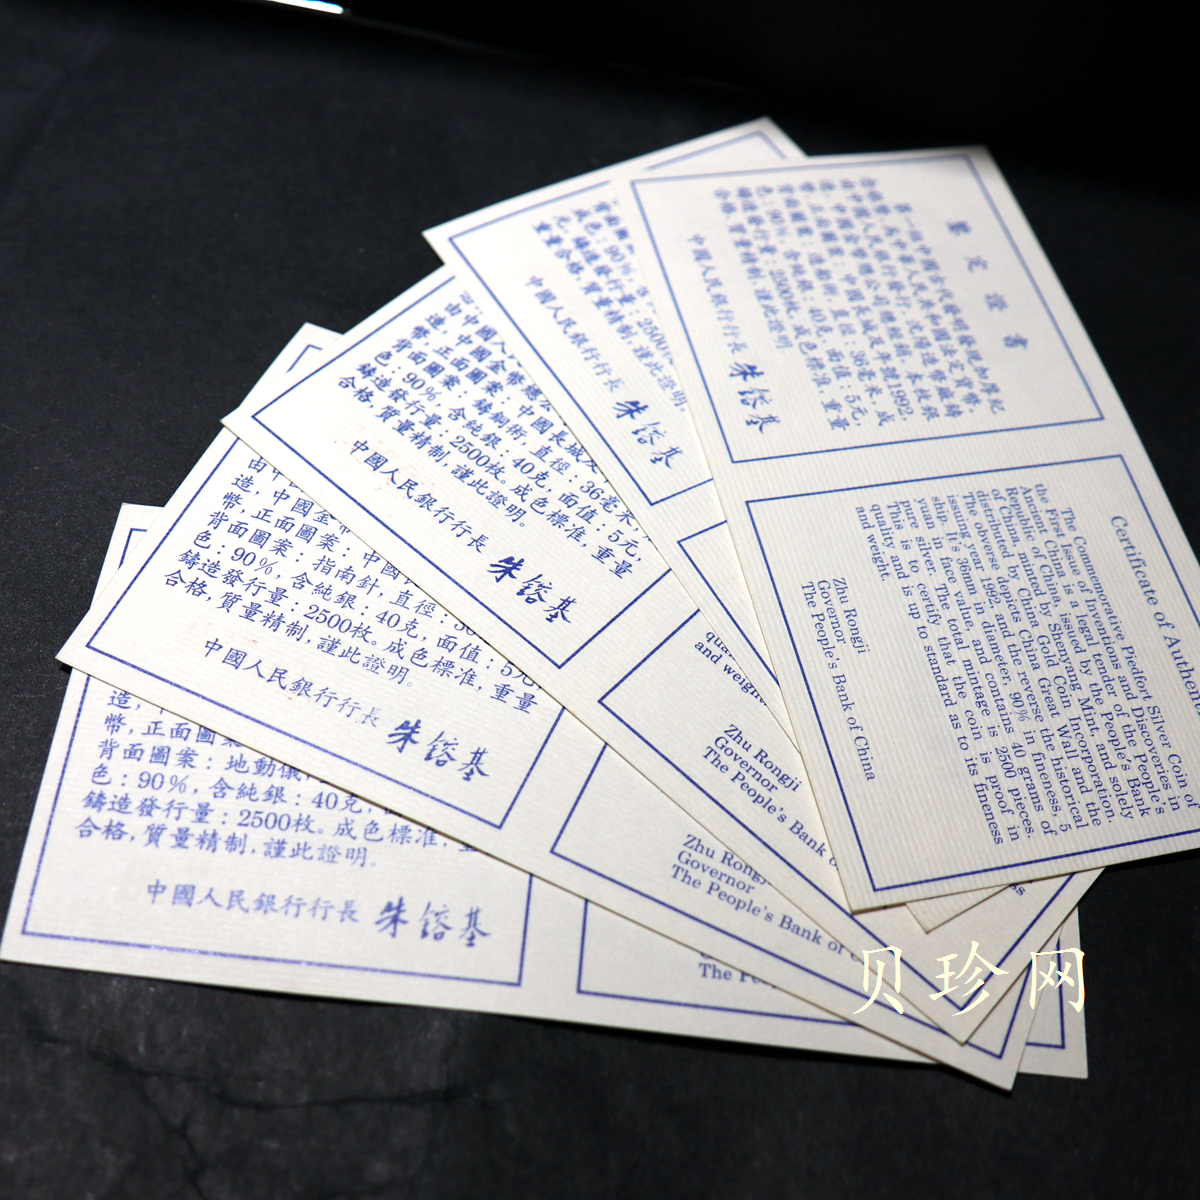 鑒定證書
第一組中國古代發明發現加厚紀
念銀幣,爲中華人民共和國法定貨幣,
由中國人民銀行發行,沈陽造幣廠鑄
造,中國金幣總公司總經銷。本枚銀
幣,正面圖案:中國長城及年號1992,
背面圖案:
直徑:36毫米,成
色:90%,含純銀:40克,面值:5元,
鑄造發行量:2500枚。成色標准,重量
合格,質量精制,謹此證明
中國人民銀行行長 朱鎔基
Certificate of Authen
The Commemorative Piedfort Silver Coin of
the First Issue of Inventions and Discoveries in
Ancient China is a legal tender of the People's
Republic of China, issued by the People's Bank
of China, minted by Shenyang Mint, and solely
distributed by China Gold Coin Incorporation.
The obverse depicts China Great Wall and the
issuing year 1992, and the reverse the historical
ship. It's 36mm in diameter, 90% in fineness, 5
yuan in face value, and contains 40 grams of
pure silver. The total mintage is 2500 pieces.
This is to certify that the coin is proof in
quality and is up to standard as to its fineness
and weight.
Zhu Rongji
Governor
The People's Bank of China
成色:90%
鑄造發行量:2500
重量合格,質量精制,謹此證明,
中國人民銀行行長 朱鎔基
由中國人
造,中國金幣總
幣,正面圖案:中國長城及
背面圖案:鑄銅術,直徑:36毫米,
色:90%,含純銀:40克,面值:5元,
鑄造發行量:2500枚。成色標准,重量
合格,質量精制,謹此證明。
中國人民銀行行長 朱鎔基
and weight
Zhu Rongji
Governor
The People's Bank o
由中
造,中國金幣
幣,正面圖案:中國
背面圖案:指南針,直徑:
色:90%,含純銀:40克,面值:5元,
鑄造發行量:2500枚。成色標准,重量
合格,質量精制,謹此證明。
中國人民銀行行長 朱鎔基
Zhu Rong
Governor
The People's Bank of
造,
幣,正面圖案
背面圖案:地動儀,
色:90%,含純銀:40克,
鑄造發行量:2500枚。成色標准,
合格,質量精制,謹此證明。
中國人民銀行行長 朱鎔基
The Peo
贝珍网